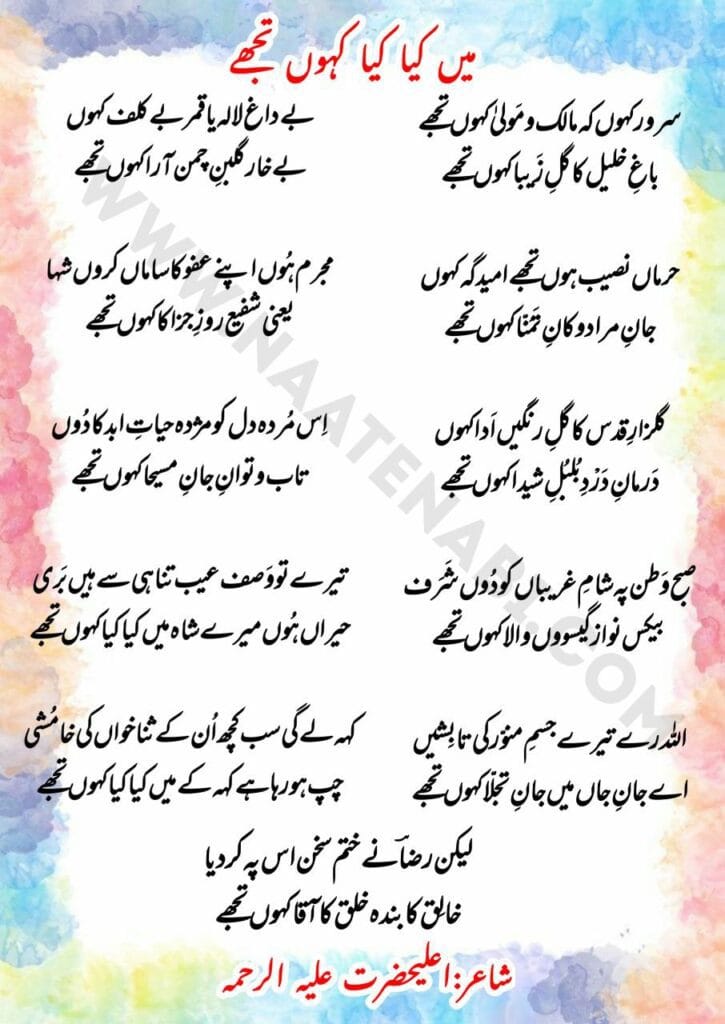 میں کیا کیا کہوں تجھے
سرور کہوں کہ مالک و مَولیٰ کہوں تجھے
باغِ خلیل کا گلِ زَیبا کہوں تجھے
بے داغ لالہ یا قمر بے کلف کہوں
بے خار گلبنِ چمن آرا کہوں تجھے
حرماں نصیب ہوں تجھے امید گہ کہوں
جانِ مراد و کانِ تمنّا کہوں تجھے
مجرم ہُوں اپنے عفو کا ساماں کروں شہا
یعنی شفیع روزِ جزا کا کہوں تجھے
گلزارِ قدس کا گلِ رنگیں اَدا کہوں
دَرمانِ دَرْدِ بُلبُلِ شیدا کہوں تجھے
اِس مُردہ دل کو مژدہ حیاتِ ابد کا دُوں
تاب و توانِ جانِ مسیحا کہوں تجھے
صبح وَطن پہ شامِ غریباں کو دُوں شَرَف
بیکس نواز گیسوؤں والا کہوں تجھے
تیرے تو وَصف عیب تناہی سے ہیں بَری
حیراں ہُوں میرے شاہ میں کیا کیا کہوں تجھے
اللہ رے تیرے جسمِ منوّر کی تابِشیں
اے جانِ جاں میں جانِ تجلّا کہوں تجھے
کہہ لے گی سب کچھ اُن کے ثناخواں کی خامُشی
چپ ہو رہا ہے کہہ کے میں کیا کیا کہوں تجھے
لیکن رضاؔ نے ختم سخن اس پہ کر دیا
خالِق کا بندہ خلق کا آقا کہوں تجھے
شاعر:اعلیحضرت علیہ الرحمہ
WWW.NAATENABI.COM